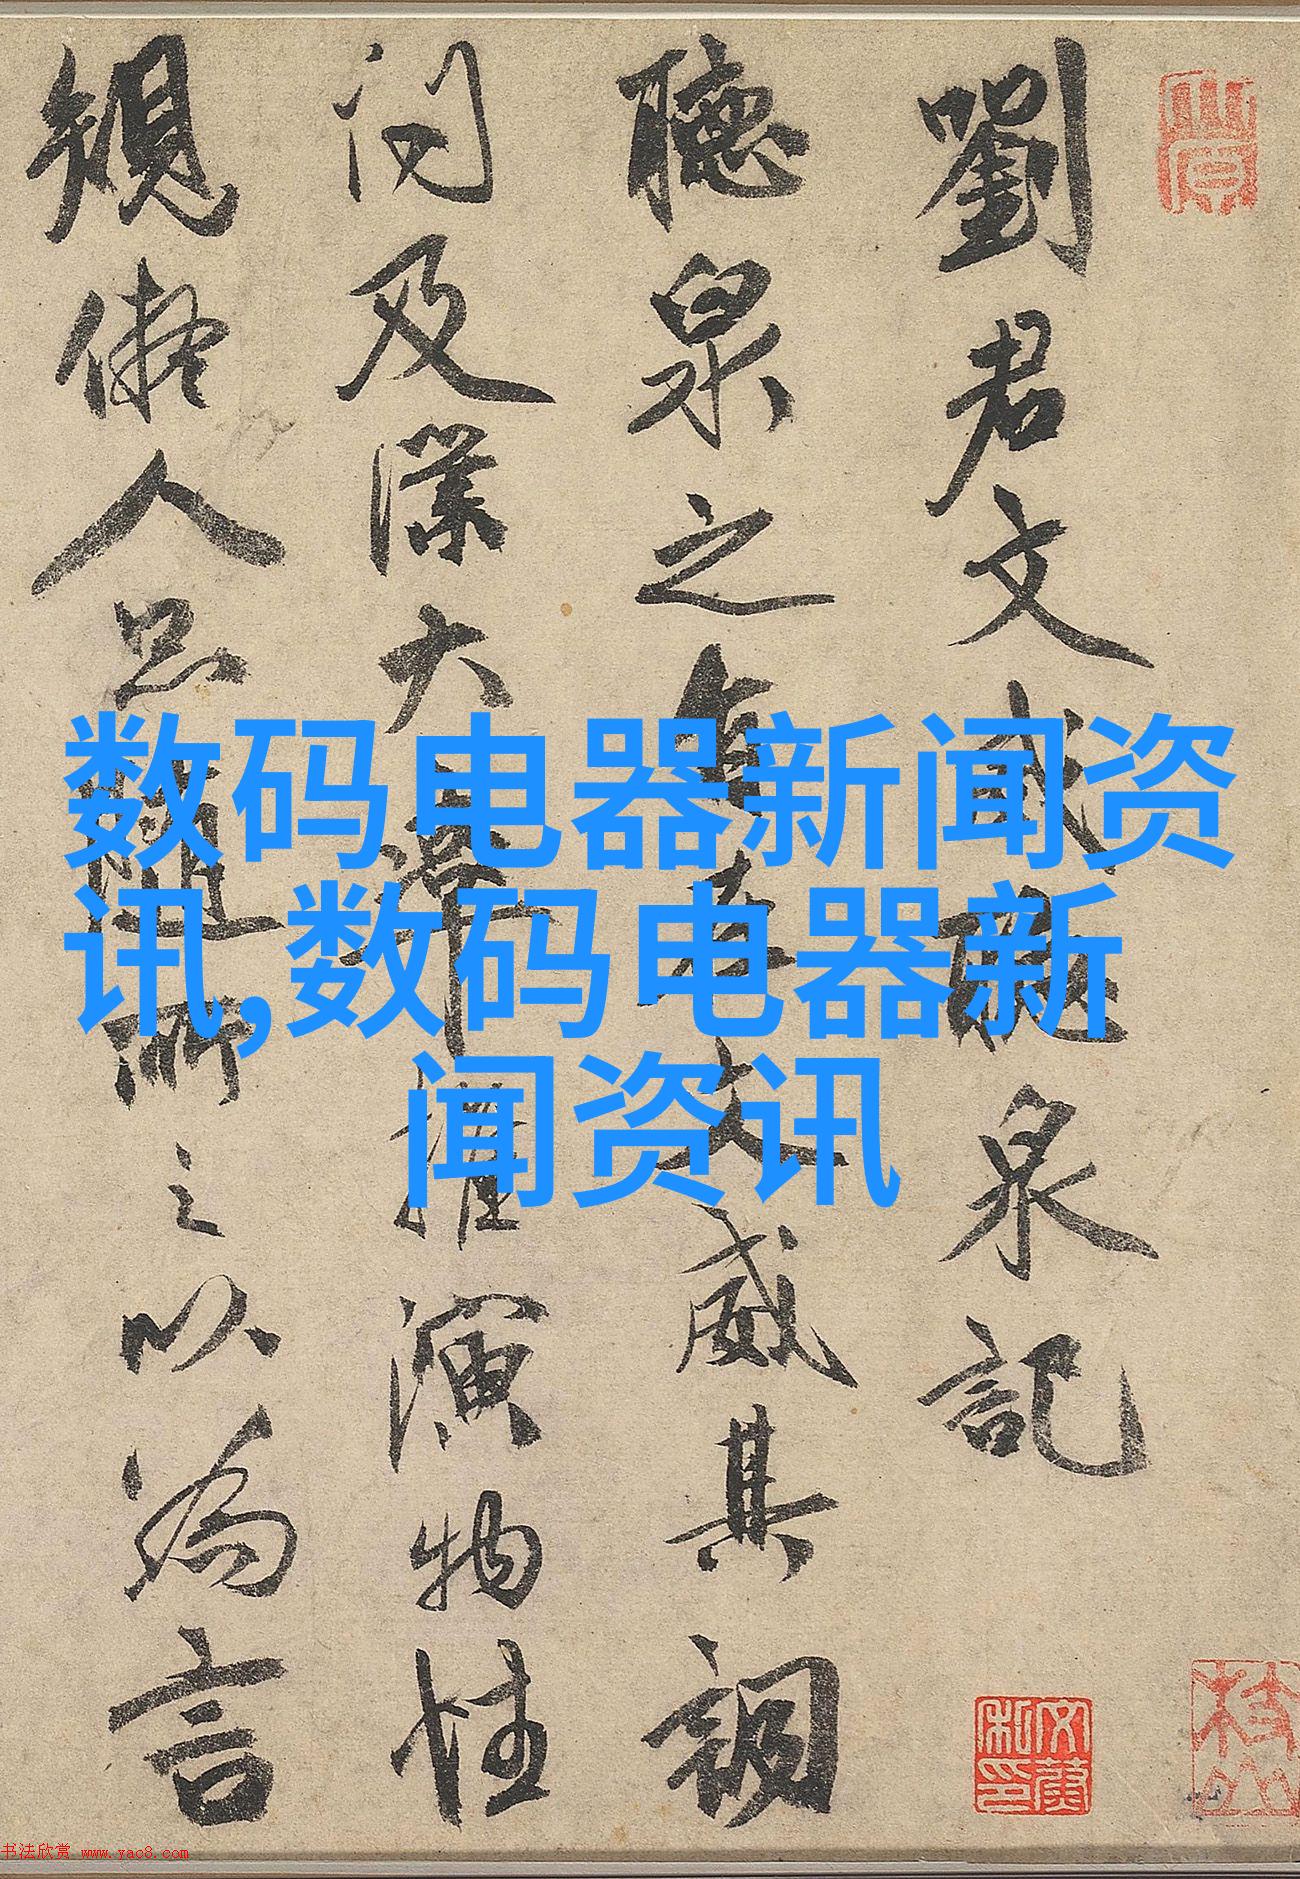 劉君文聽泉記
聽泉之文威其詞
问及大推演物性
規儗人品所之以為言
数码电器新闻资
讯,数码电器新
闻资讯
书法欣赏 www.yac8.com